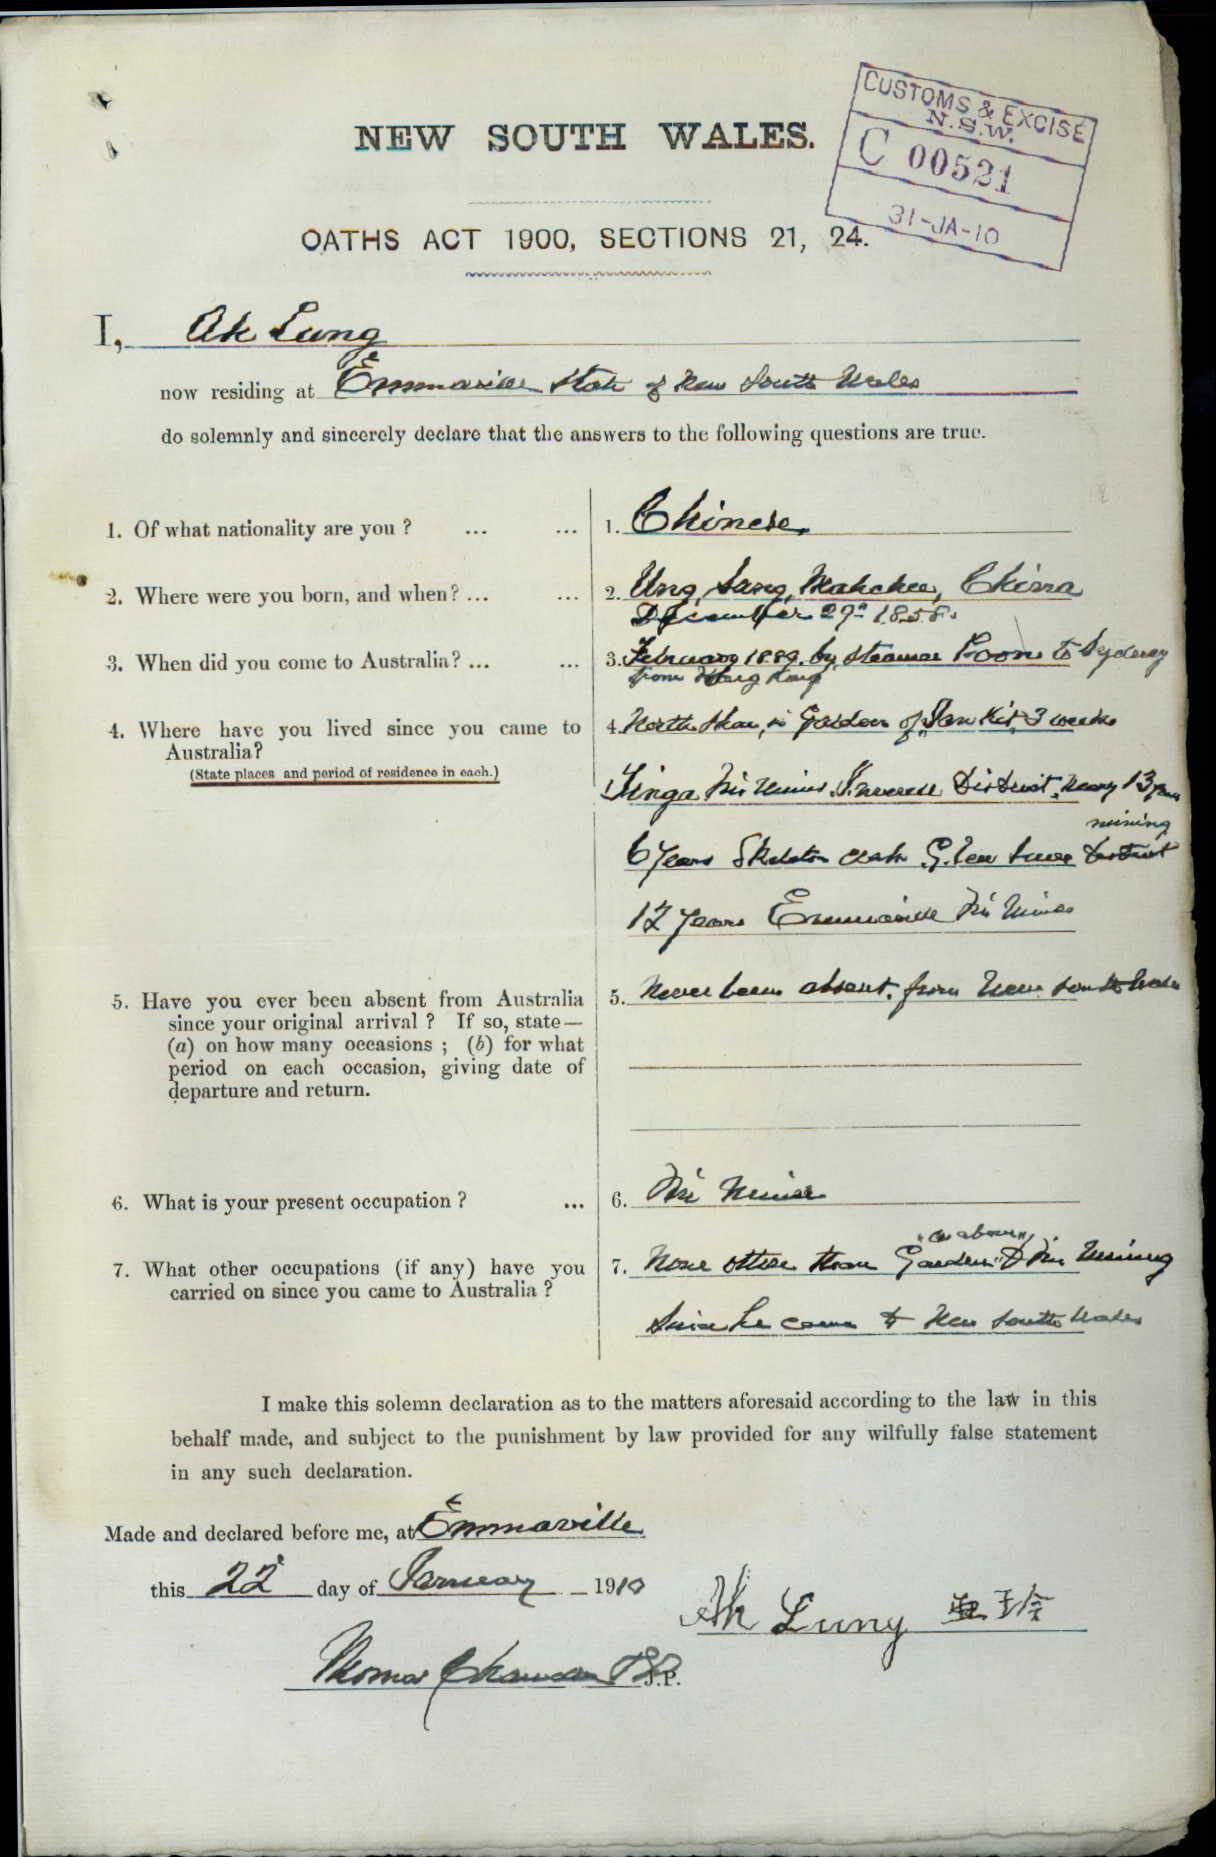 CUSTOMS & EXCISE
N.S.W.
C 00521
31-JA-10
NEW SOUTH WALES.
OATHS ACT 1900, SECTIONS 21, 24.
I, Ah Lung
now residing at Emmaville State of New South Wales
do solemnly and sincerely declare that the answers to the following questions are true.
1. Of what nationality are you ? ... ... 1. Chinese.
2. Where were you born, and when? ... ... 2. Ung Sang, China
December 27th 1858.
3. When did you come to Australia? ... ... 3. February 1889. by steamer to Sydney
from Hong Kong
4. Where have you lived since you came to 4. North Shore, in Garden of 3 weeks
Australia?
(State places and period of residence in each.)
Tinga Tin Mines Inverell District. nearly 13 years
mining
6 years Skeleton Creek Glen Innes District
12 years Emmaville Tin Mines
5. Have you ever been absent from Australia 5. Never been absent. from New South Wales
since your original arrival ? If so, state—
(a) on how many occasions ; (b) for what
period on each occasion, giving date of
departure and return.
6. What is your present occupation ? ... 6. Tin Miner
"as above"
7. What other occupations (if any) have you 7. None other than Garden & Tin Mining
carried on since you came to Australia ?
Since he came to New South Wales
I make this solemn declaration as to the matters aforesaid according to the law in this
behalf made, and subject to the punishment by law provided for any wilfully false statement
in any such declaration.
Made and declared before me, at Emmaville
this 22 day of January 1910
Ah Lung 亜玲
Thomas J.P.